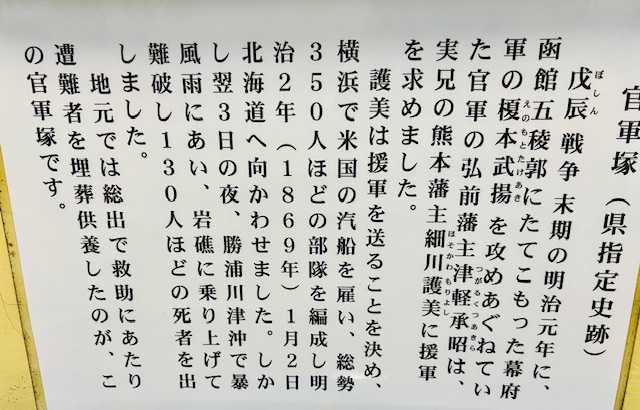 官軍塚（県指定史跡）
戊辰戦争末期の明治元年に、
函館五稜郭にたてこもった幕府
軍の榎本武揚を攻めあぐねてい
た官軍の弘前藩主津軽承昭は、
実兄の熊本藩主細川護美に援軍
を求めました。
護美は援軍を送ることを決め、
横浜で米国の汽船を雇い、総勢
３５０人ほどの部隊を編成し明
治２年（１８６９年）１月２日
北海道へ向かわせました。しか
し翌３日の夜、勝浦川津沖で暴
風雨にあい、岩礁に乗り上げて
難破し１３０人ほどの死者を出
しました。
地元では総出で救助にあたり
遭難者を埋葬供養したのが、こ
の官軍塚です。
ぼしん
えのもとたけあき
つがるつぐあきら
ほそかわもりよし